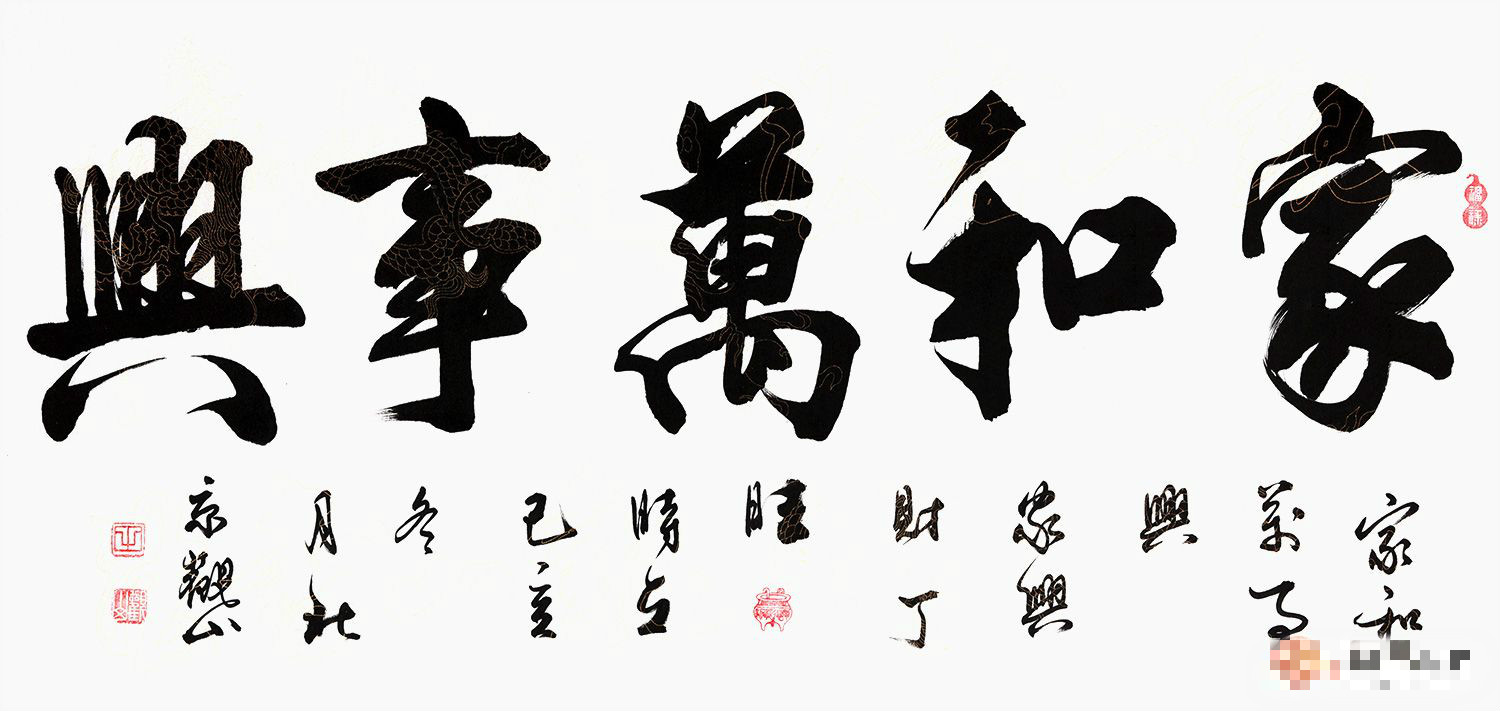 家和萬事興
家和
萬事
興
家興
財丁
旺
時在
己亥
冬
月北
京觀山
福祿